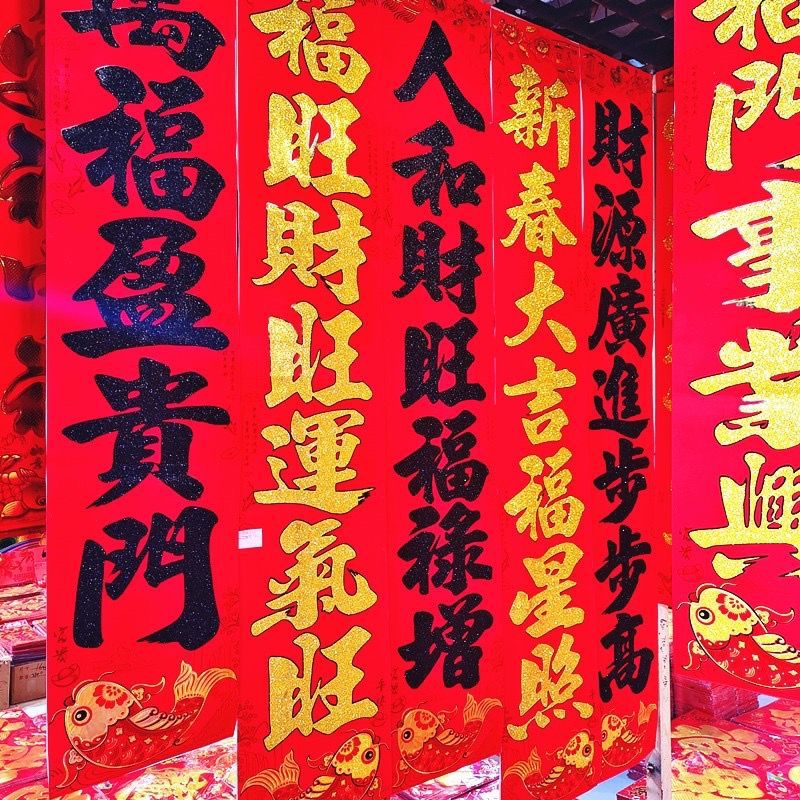 萬福盈貴門
福旺財旺運氣旺
人和財旺福祿增
新春大吉福星照
財源廣進步步高
福門事業興